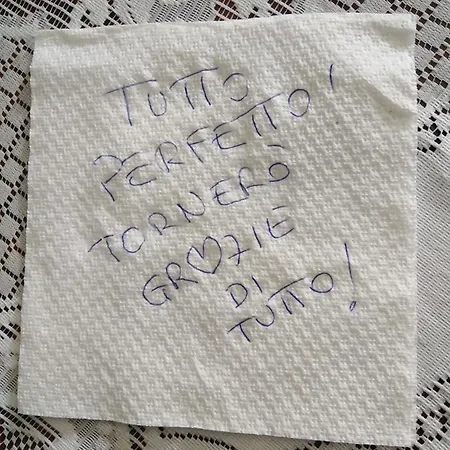 TUTTO
PERFETTO!
TORNERÒ
GR♡ZIE
DI
TUTTO!